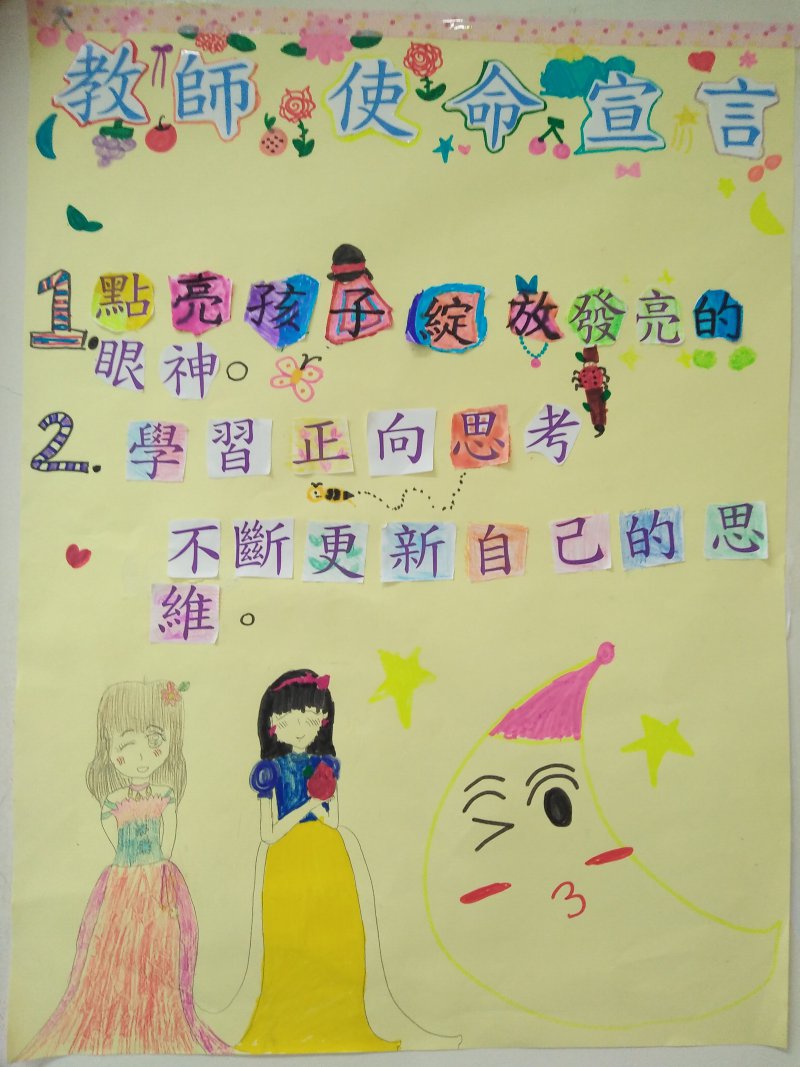 教師使命宣言
1.點亮孩子綻放發亮的
眼神。
2.學習正向思考
不斷更新自己的思
維。